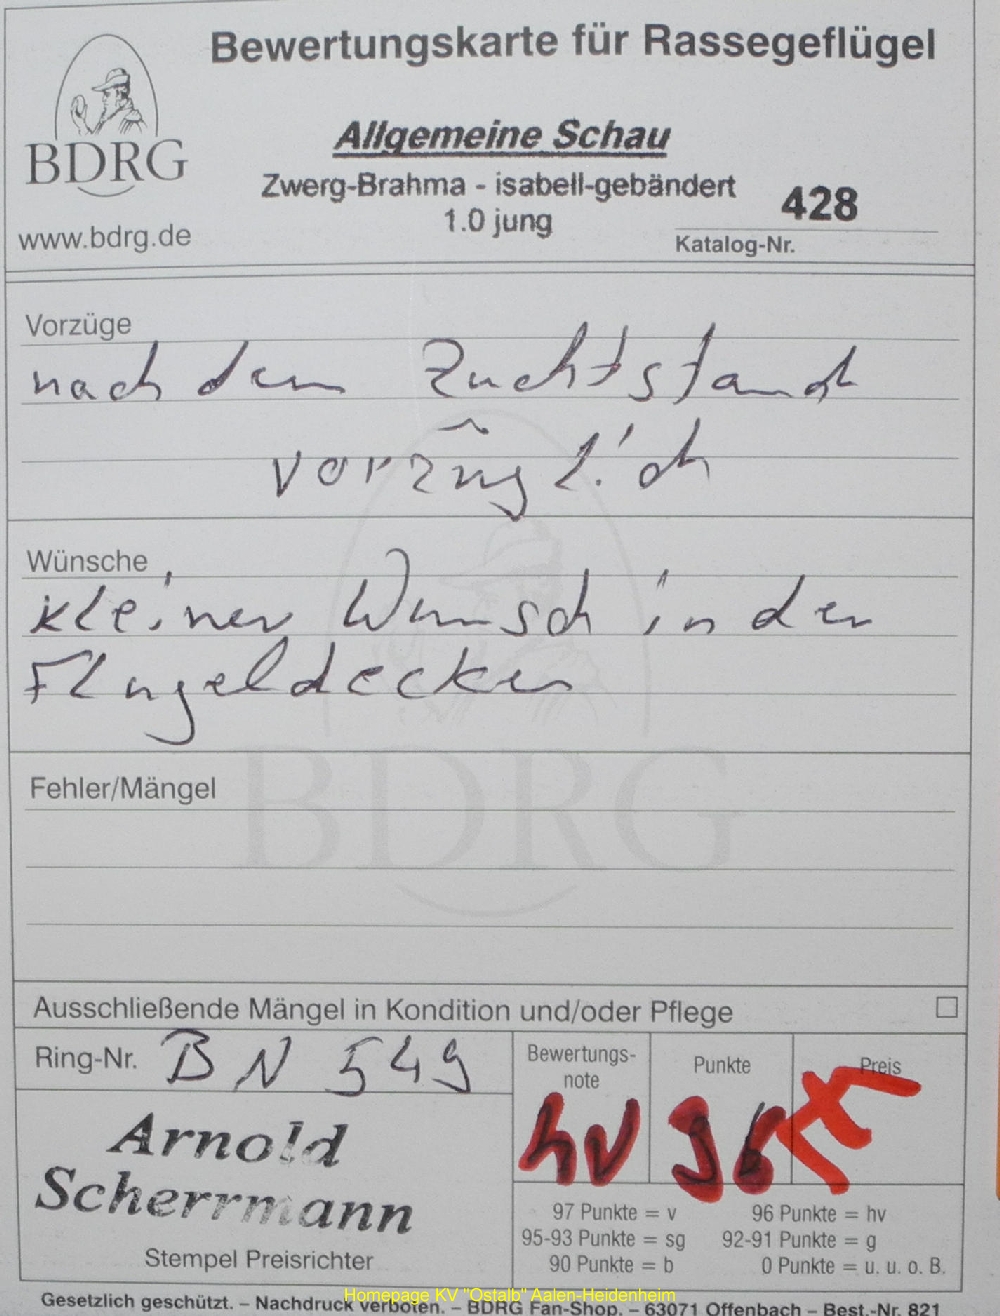 Bewertungskarte für Rassegeflügel
BDRG
www.bdrg.de
Allgemeine Schau
Zwerg-Brahma - isabell-gebändert
1.0 jung
428
Katalog-Nr.
Vorzüge
nach dem Zuchtstand
vorzüglich
Wünsche
kleiner Wunsch in den
Flugeldecken
BDRG
Fehler/Mängel
Ausschließende Mängel in Kondition und/oder Pflege
Ring-Nr. BN 549
Bewertungs-
note
Punkte
Preis
hv 96
Arnold
Scherrmann
Stempel Preisrichter
97 Punkte = v 96 Punkte = hv
95-93 Punkte = sg 92-91 Punkte = g
90 Punkte = b 0 Punkte = u. u. o. B.
Homepage KV "Ostalb" Aalen-Heidenheim
Gesetzlich geschützt. – Nachdruck verboten. – BDRG Fan-Shop. – 63071 Offenbach – Best.-Nr. 821